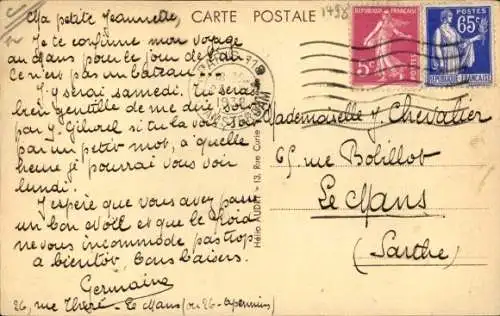 CARTE POSTALE
1938
Ma petite Jeannette,
Je te confirme mon voyage
au Mans pour le jour de l'an
Ce n'est pas un bateau.
J'y serai samedi. Tu serais
bien gentille de me dire
par J. si tu la vois
par un petit mot, à quelle
heure je pourrai vous voir
lundi.
J'espère que vous avez passé
un bon Noël et que le froid
ne vous incommode pas trop
à bientôt, bons baisers.
Germaine
26, rue - Le Mans
RÉPUBLIQUE FRANÇAISE
5c
POSTES
POSTES
65c
RÉPUBLIQUE FRANÇAISE
Mademoiselle J. Chevalier
65, rue Bollillot
Le Mans
(Sarthe)
Hélio AUDRY - 13, Rue Curie